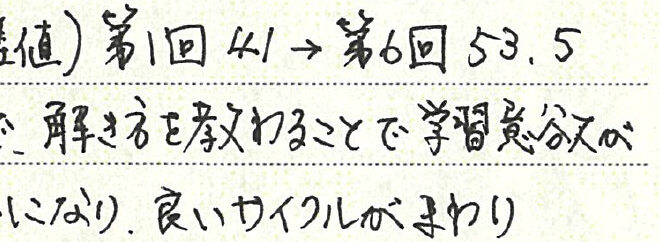 差値) 第1回 41 → 第6回 53.5
で、解き方を教わることで学習意欲が
になり、良いサイクルがまわり